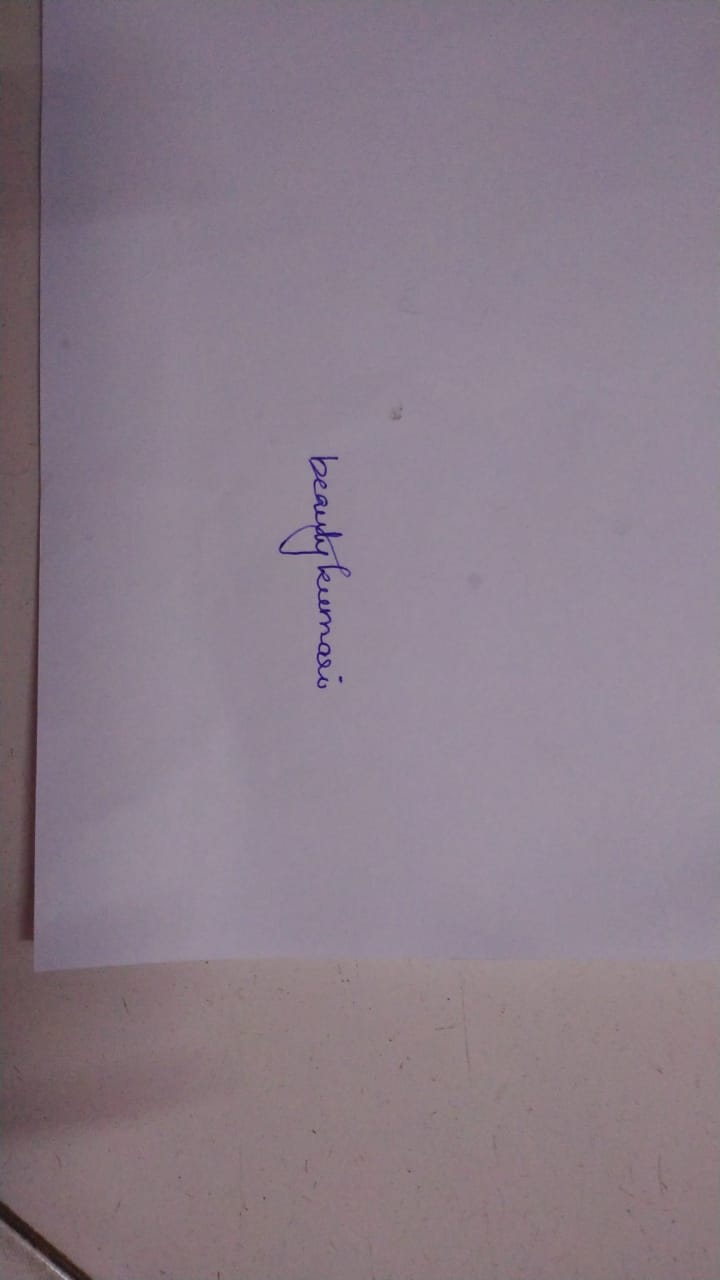 beauty kumari